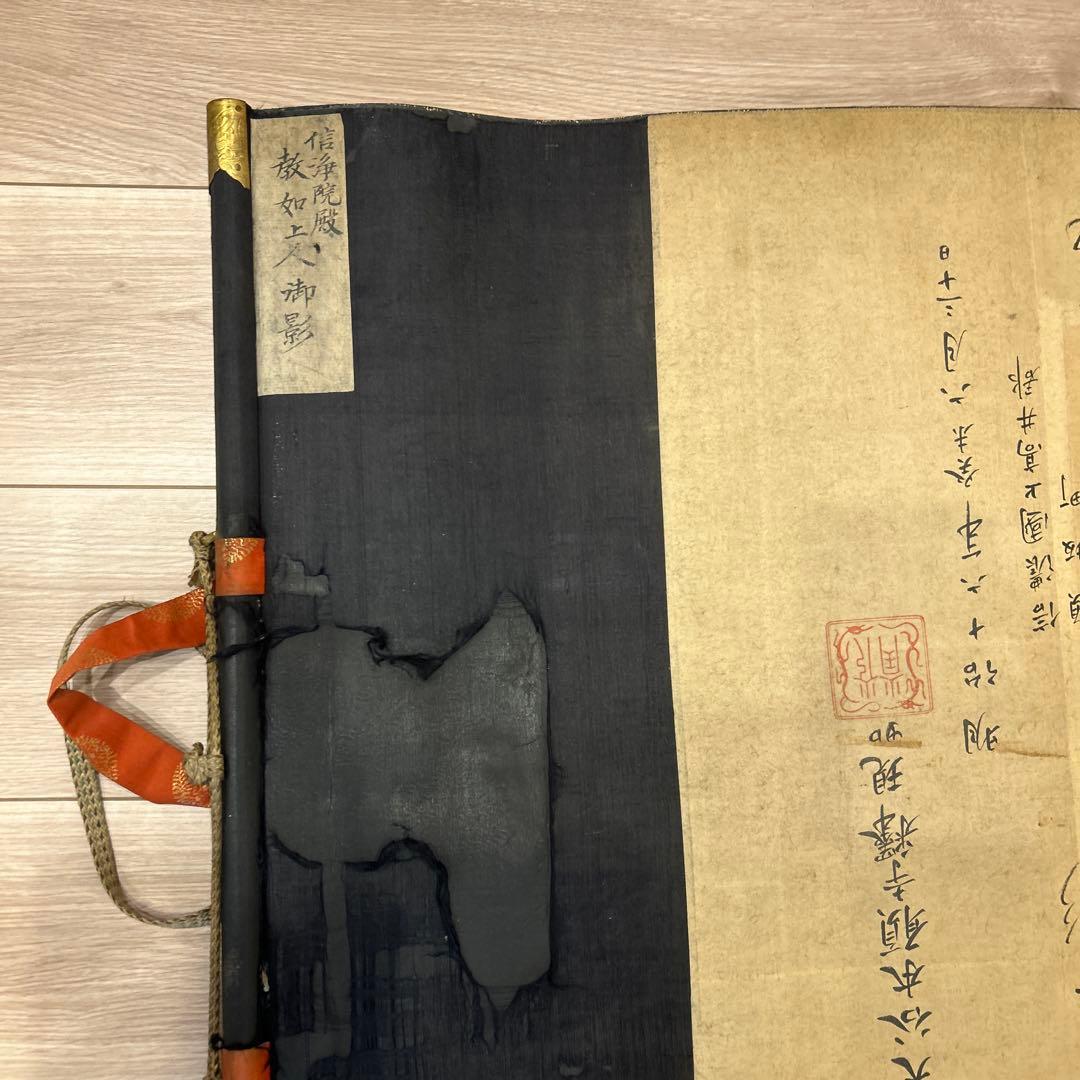 信浄院殿
教如上人御影
大谷本願寺釋現如
明治十六年癸未六月三十日
信濃國上高井郡
須坂町